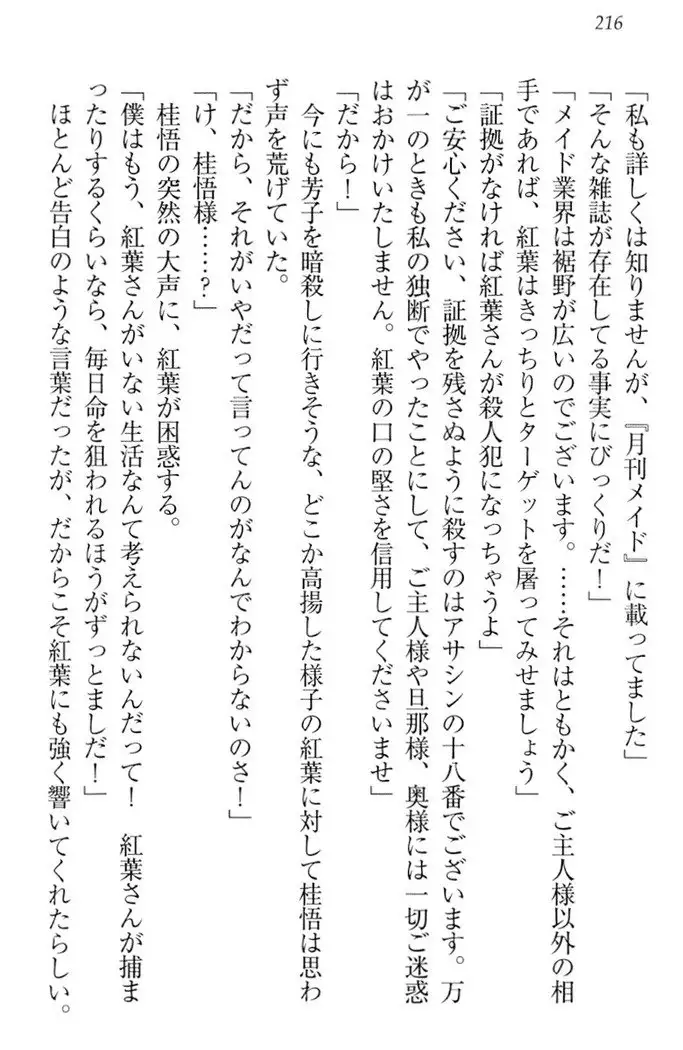 216
「私も詳しくは知りませんが、『月刊メイド』に載ってました」
「そんな雑誌が存在してる事実にびっくりだ！」
「メイド業界は裾野が広いのでございます。……それはともかく、ご主人様以外の相
手であれば、紅葉はきっちりとターゲットを屠ってみせましょう」
「証拠がなければ紅葉さんが殺人犯になっちゃうよ」
「ご安心ください、証拠を残さぬように殺すのはアサシンの十八番でございます。万
が一のときも私の独断でやったことにして、ご主人様や旦那様、奥様には一切ご迷惑
はおかけいたしません。紅葉の口の堅さを信用してくださいませ」
「だから！」
今にも芳子を暗殺しに行きそうな、どこか高揚した様子の紅葉に対して桂悟は思わ
ず声を荒げていた。
「だから、それがいやだって言ってんのがなんでわからないのさ！」
「け、桂悟様……？」
桂悟の突然の大声に、紅葉が困惑する。
「僕はもう、紅葉さんがいない生活なんて考えられないんだって！　紅葉さんが捕ま
ったりするくらいなら、毎日命を狙われるほうがずっとましだ！」
ほとんど告白のような言葉だったが、だからこそ紅葉にも強く響いてくれたらしい。